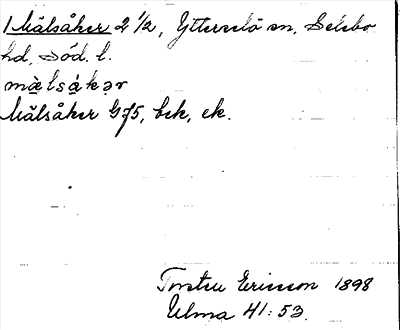 1 Mälsåker 2 1/2, Ytterselö sn, Selebo
hd, Söd. l.
mä̀lså̀kə̣r
Mälsåker G75, bek, ek.
Torsten Ericsson 1898
Ulma 41:53.